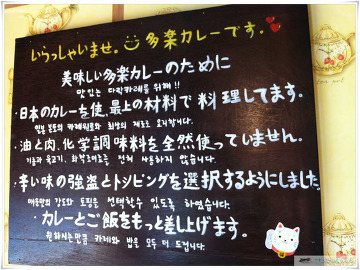 いらっしゃいませ。多楽カレーです。
美味しい多楽カレーのために
맛있는 다락카레를 위해!!
·日本のカレーを使、最上の材料で料理してます。
일본 본토의 카레원료와 최상의 재료로 요리합니다.
·油と肉、化学調味料を全然使っていません。
기름과 육고기, 화학조미료를 전혀 사용하지 않습니다.
·辛い味の強盗とトシピングを選択するようにしました
매운맛의 강도와 토핑을 선택할수 있도록 하였습니다.
·カレーとご飯をもっと差し上げます。
원하시는만큼 카레와 밥을 모두 더 드립니다.